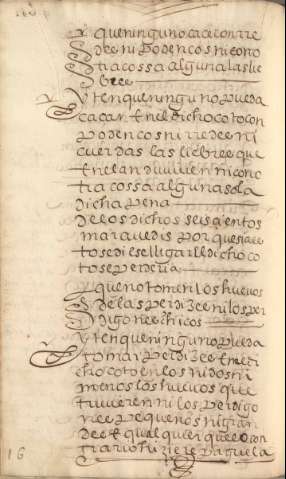 y que ninguno cace con rre
de ni podencos ni con o
tra cossa alguna las lie
bres
yten que ninguno pueda
caçar en el dicho coto con
podencos ni rredes ni
cuerdas las liebres que
en el andubieren ni con o
tra cossa alguna so la
dicha pena
de los dichos seiscientos
maravedis por que si a
to se diese lugar el dicho co
to se perderia
y que no tomen los huevos
de las perdizes ni los per
digones chicos
yten que ninguno pueda
tomar perdizes en el di
cho coto en los nidos ni
menos los huevos que
tuvieren ni los perdigo
nes pequeños ni gran
des qualquier que lo con
trario hiziere pague la
16